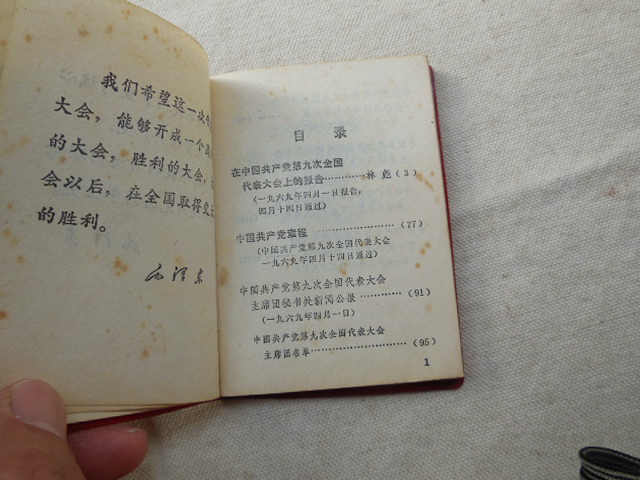 我们希望这一次
大会，能够开成一个
的大会，胜利的大会，
会以后，在全国取得更
的胜利。
毛泽东
目 录
在中国共产党第九次全国
代表大会上的报告…………林 彪（3）
（一九六九年四月一日报告，
四月十四日通过）
中国共产党章程……………………（77）
（中国共产党第九次全国代表大会
一九六九年四月十四日通过）
中国共产党第九次全国代表大会
主席团秘书处新闻公报…………（91）
（一九六九年四月一日）
中国共产党第九次全国代表大会
主席团名单……………………（95）
1